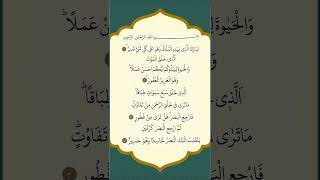 بِسْمِ اللهِ الرَّحْمٰنِ الرَّحِيْمِ
تَبَارَكَ الَّذِى بِيَدِهِ الْمُلْكُ وَهُوَ عَلٰى كُلِّ شَىْءٍ قَدِيْرٌ
الَّذِى خَلَقَ الْمَوْتَ
وَالْحَيٰوةَ لِيَبْلُوَكُمْ اَيُّكُمْ اَحْسَنُ عَمَلًا
وَهُوَ الْعَزِيْزُ الْغَفُوْرُ
الَّذِى خَلَقَ سَبْعَ سَمٰوَاتٍ طِبَاقًا
مَا تَرٰى فِى خَلْقِ الرَّحْمٰنِ مِنْ تَفَاوُتٍ
فَارْجِعِ الْبَصَرَ هَلْ تَرٰى مِنْ فُطُوْرٍ
ثُمَّ ارْجِعِ الْبَصَرَ كَرَّتَيْنِ
يَنْقَلِبْ اِلَيْكَ الْبَصَرُ خَاسِئًا وَهُوَ حَسِيْرٌ